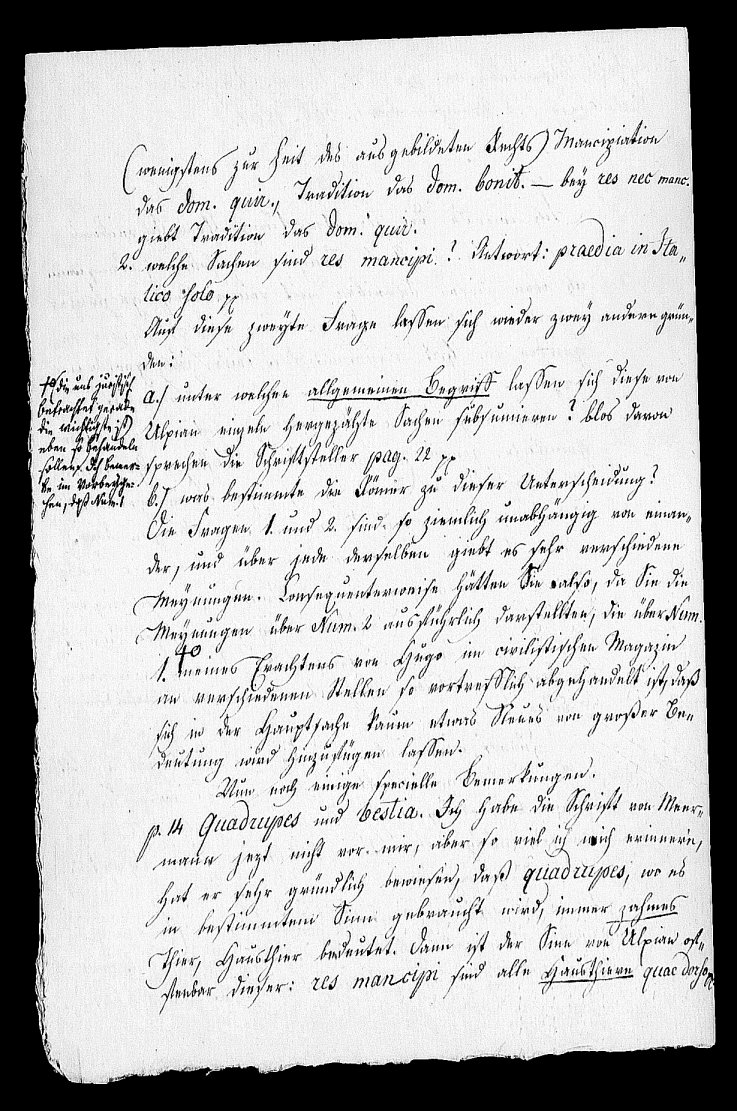 (wenigstens zur Zeit des ausgebildeten Rechts) Mancipiation
das dom. quir., Tradition das dom. bonit. — bey res nec manc.
giebt Tradition das dom. quir.
2. welche Sachen sind res mancipi? Antwort: praedia in Ita-
lico solo pp
Auf diese zweyte Frage lassen sich wieder zwey andere grün-
den:
a.) unter welchen allgemeinen Begriff lassen sich diese von
Ulpian einzeln hergezählte Sachen subsumieren? blos davon
sprechen die Schriftsteller pag. 22 pp
b.) was bestimmte die Römer zu dieser Unterscheidung?
Die Fragen 1. und 2. sind so ziemlich unabhängig von einan-
der, und über jede derselben giebt es sehr verschiedene
Meynungen. Consequenterweise hätten Sie also, da Sie die
Meynungen über Num. 2 ausführlich darstellten, die über Num.
1. +) meines Erachtens von Hugo im civilistischen Magazin
an verschiedenen Stellen so vortrefflich abgehandelt ist, daß
sich in der Hauptsache kaum etwas Neues von großer Be-
deutung wird hinzufügen lassen.
Nun noch einige specielle Bemerkungen.
p. 14 Quadrupes und bestia. Ich habe die Schrift von Meer-
mann jezt nicht vor mir, aber so viel ich mich erinnere,
hat er sehr gründlich bewiesen, daß quadrupes, wo es
in bestimmtem Sinn gebraucht wird, immer zahmes
Thier, Hausthier bedeutet. Dann ist der Sinn von Ulpian of-
fenbar dieser: res mancipi sind alle Hausthiere quae dorso
+) (die uns juristisch
betrachtet gerade
die wichtigste ist)
eben so behandeln
sollen. Ich bemer-
ke im Vorbeyge-
hen, daß Num. 1